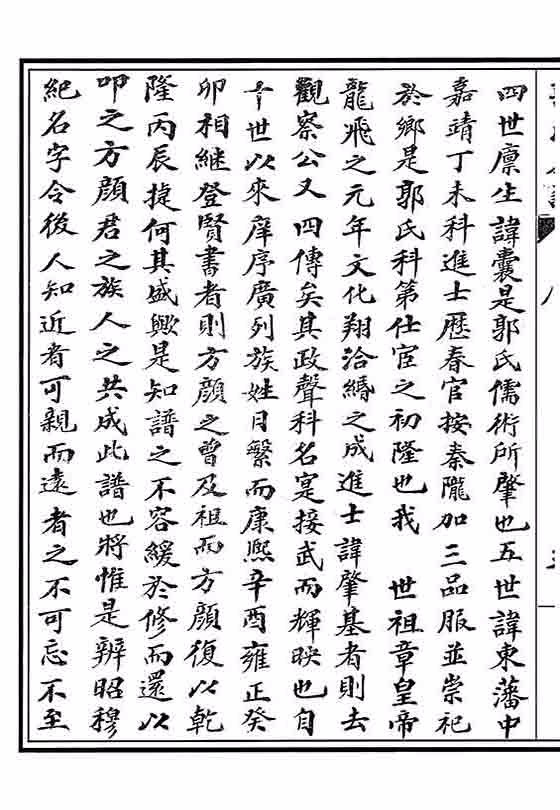 四世廪生諱囊是郭氏儒術所肇也五世諱東藩中
嘉靖丁未科進士歷春官按秦隴加三品服並崇祀
於鄉是郭氏科第仕宦之初隆也我　世祖章皇帝
龍飛之元年文化翔洽緡之成進士諱肇基者則去
觀察公又四傳矣其政聲科名寔接武而輝映也自
十世以來庠序廣列族姓日繁而康熙辛酉雍正癸
卯相繼登賢書者則方顔之曾及祖而方顔復以乾
隆丙辰捷何其盛歟是知譜之不容緩於修而還以
叩之方顔君之族人之共成此譜也將惟是辨昭穆
紀名字令後人知近者可親而遠者之不可忘不至
八